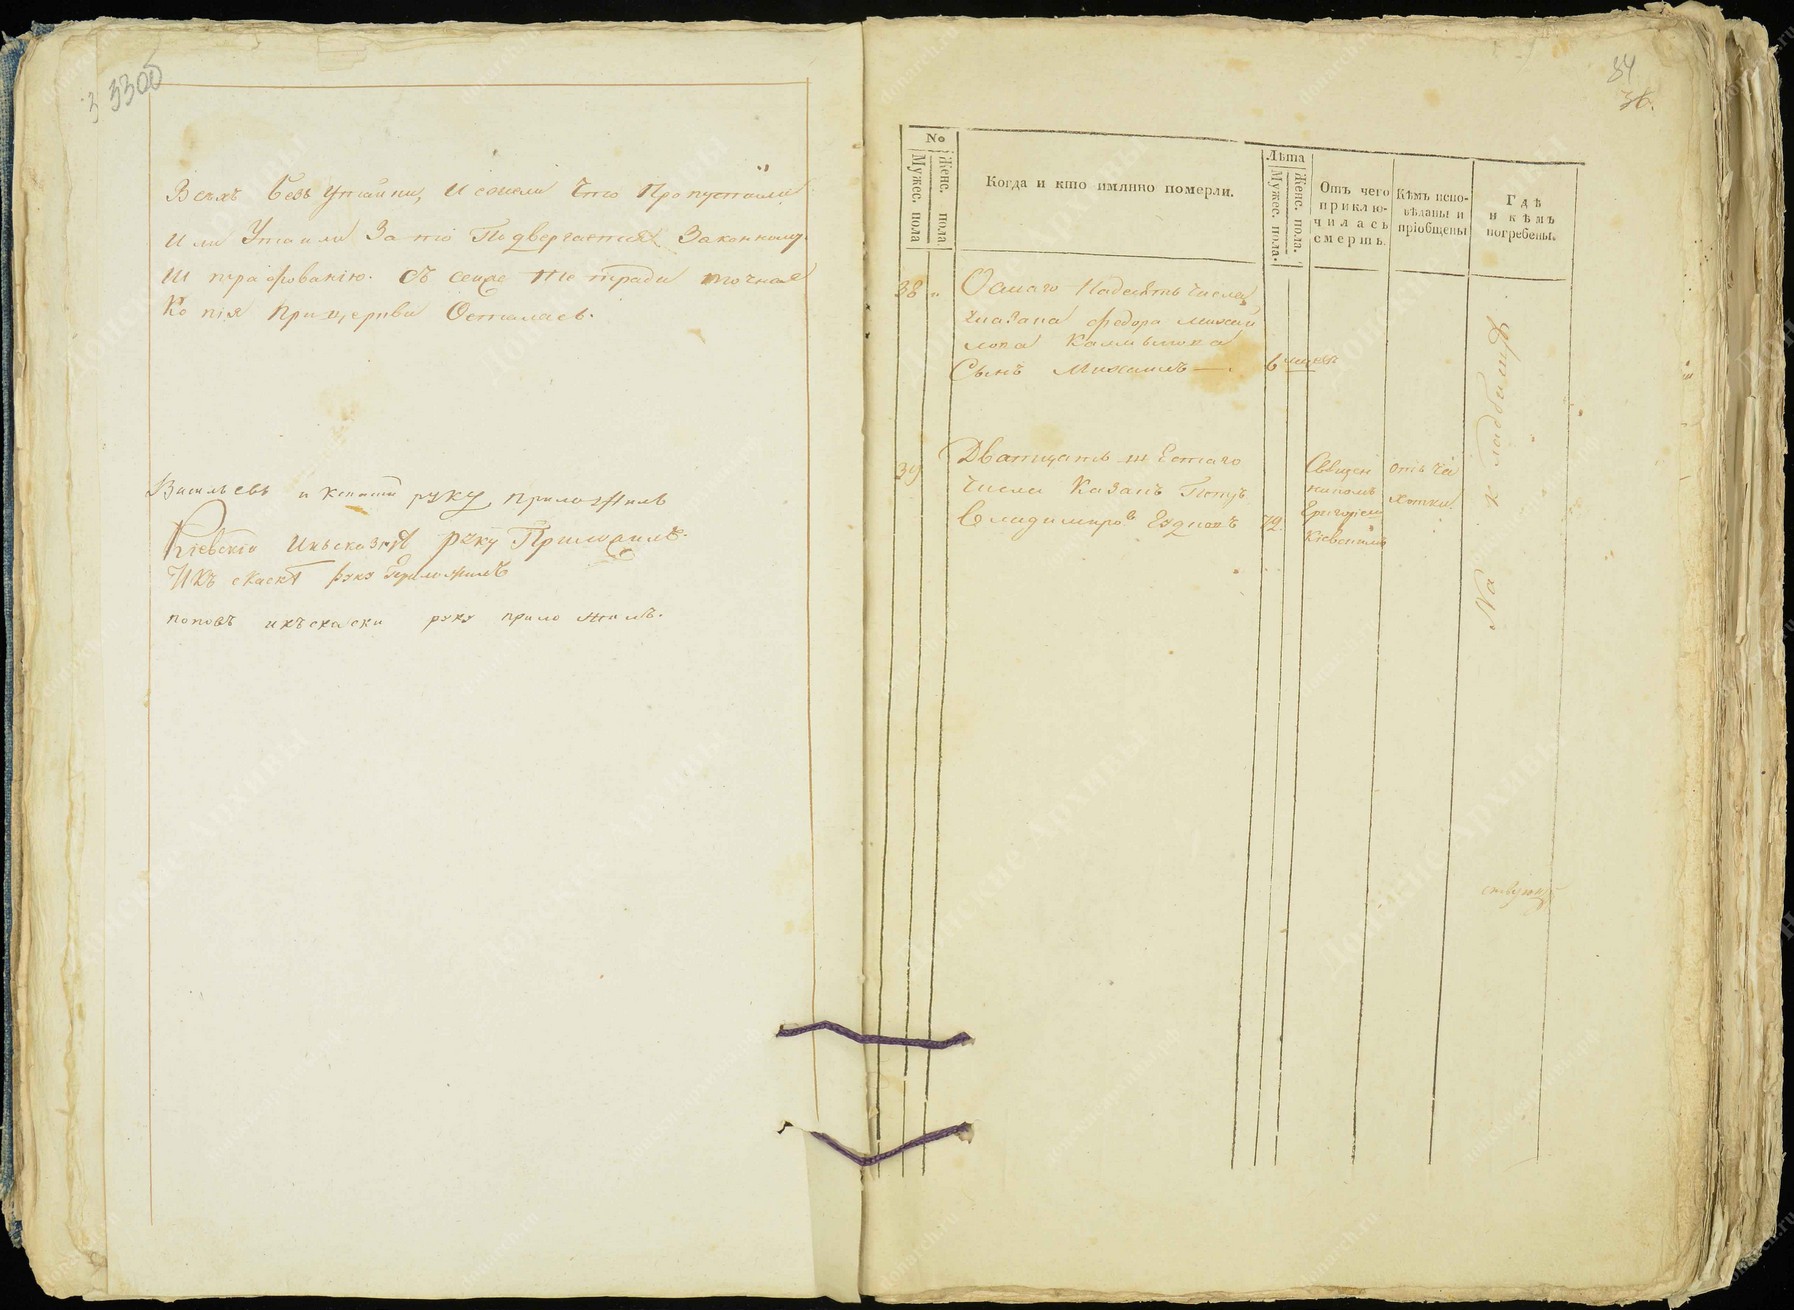 33об
Всѣхъ безъ утайки, и если что пропустили
или утаили за то подвергаемся законному
штрафованію. Съ сей же тетради точная
копія при церкви осталась.
Васильевъ и к сей руку приложилъ
Кіевскій руку приложилъ.
руку приложилъ
поповъ руку приложилъ.
34
36.
№
Мужес. пола
Женс. пола
Когда и кто имянно померли.
Лѣта
Мужес. пола.
Женс. пола.
Отъ чего
приклю-
чилась
смерть.
Кѣмъ испо-
вѣданы и
пріобщены
Гдѣ
и кѣмъ
погребены.
38 „ Осмаго надесять числа
казака Федора Михай
лова Калмыкова
сынъ Михаилъ — 6
39 Дватцать шестаго
числа казакъ Петръ
Владимировъ 72.
Священ
никомъ
Григоріем
Кіевскимъ
отъ ча
хотки
На кладбищѣ